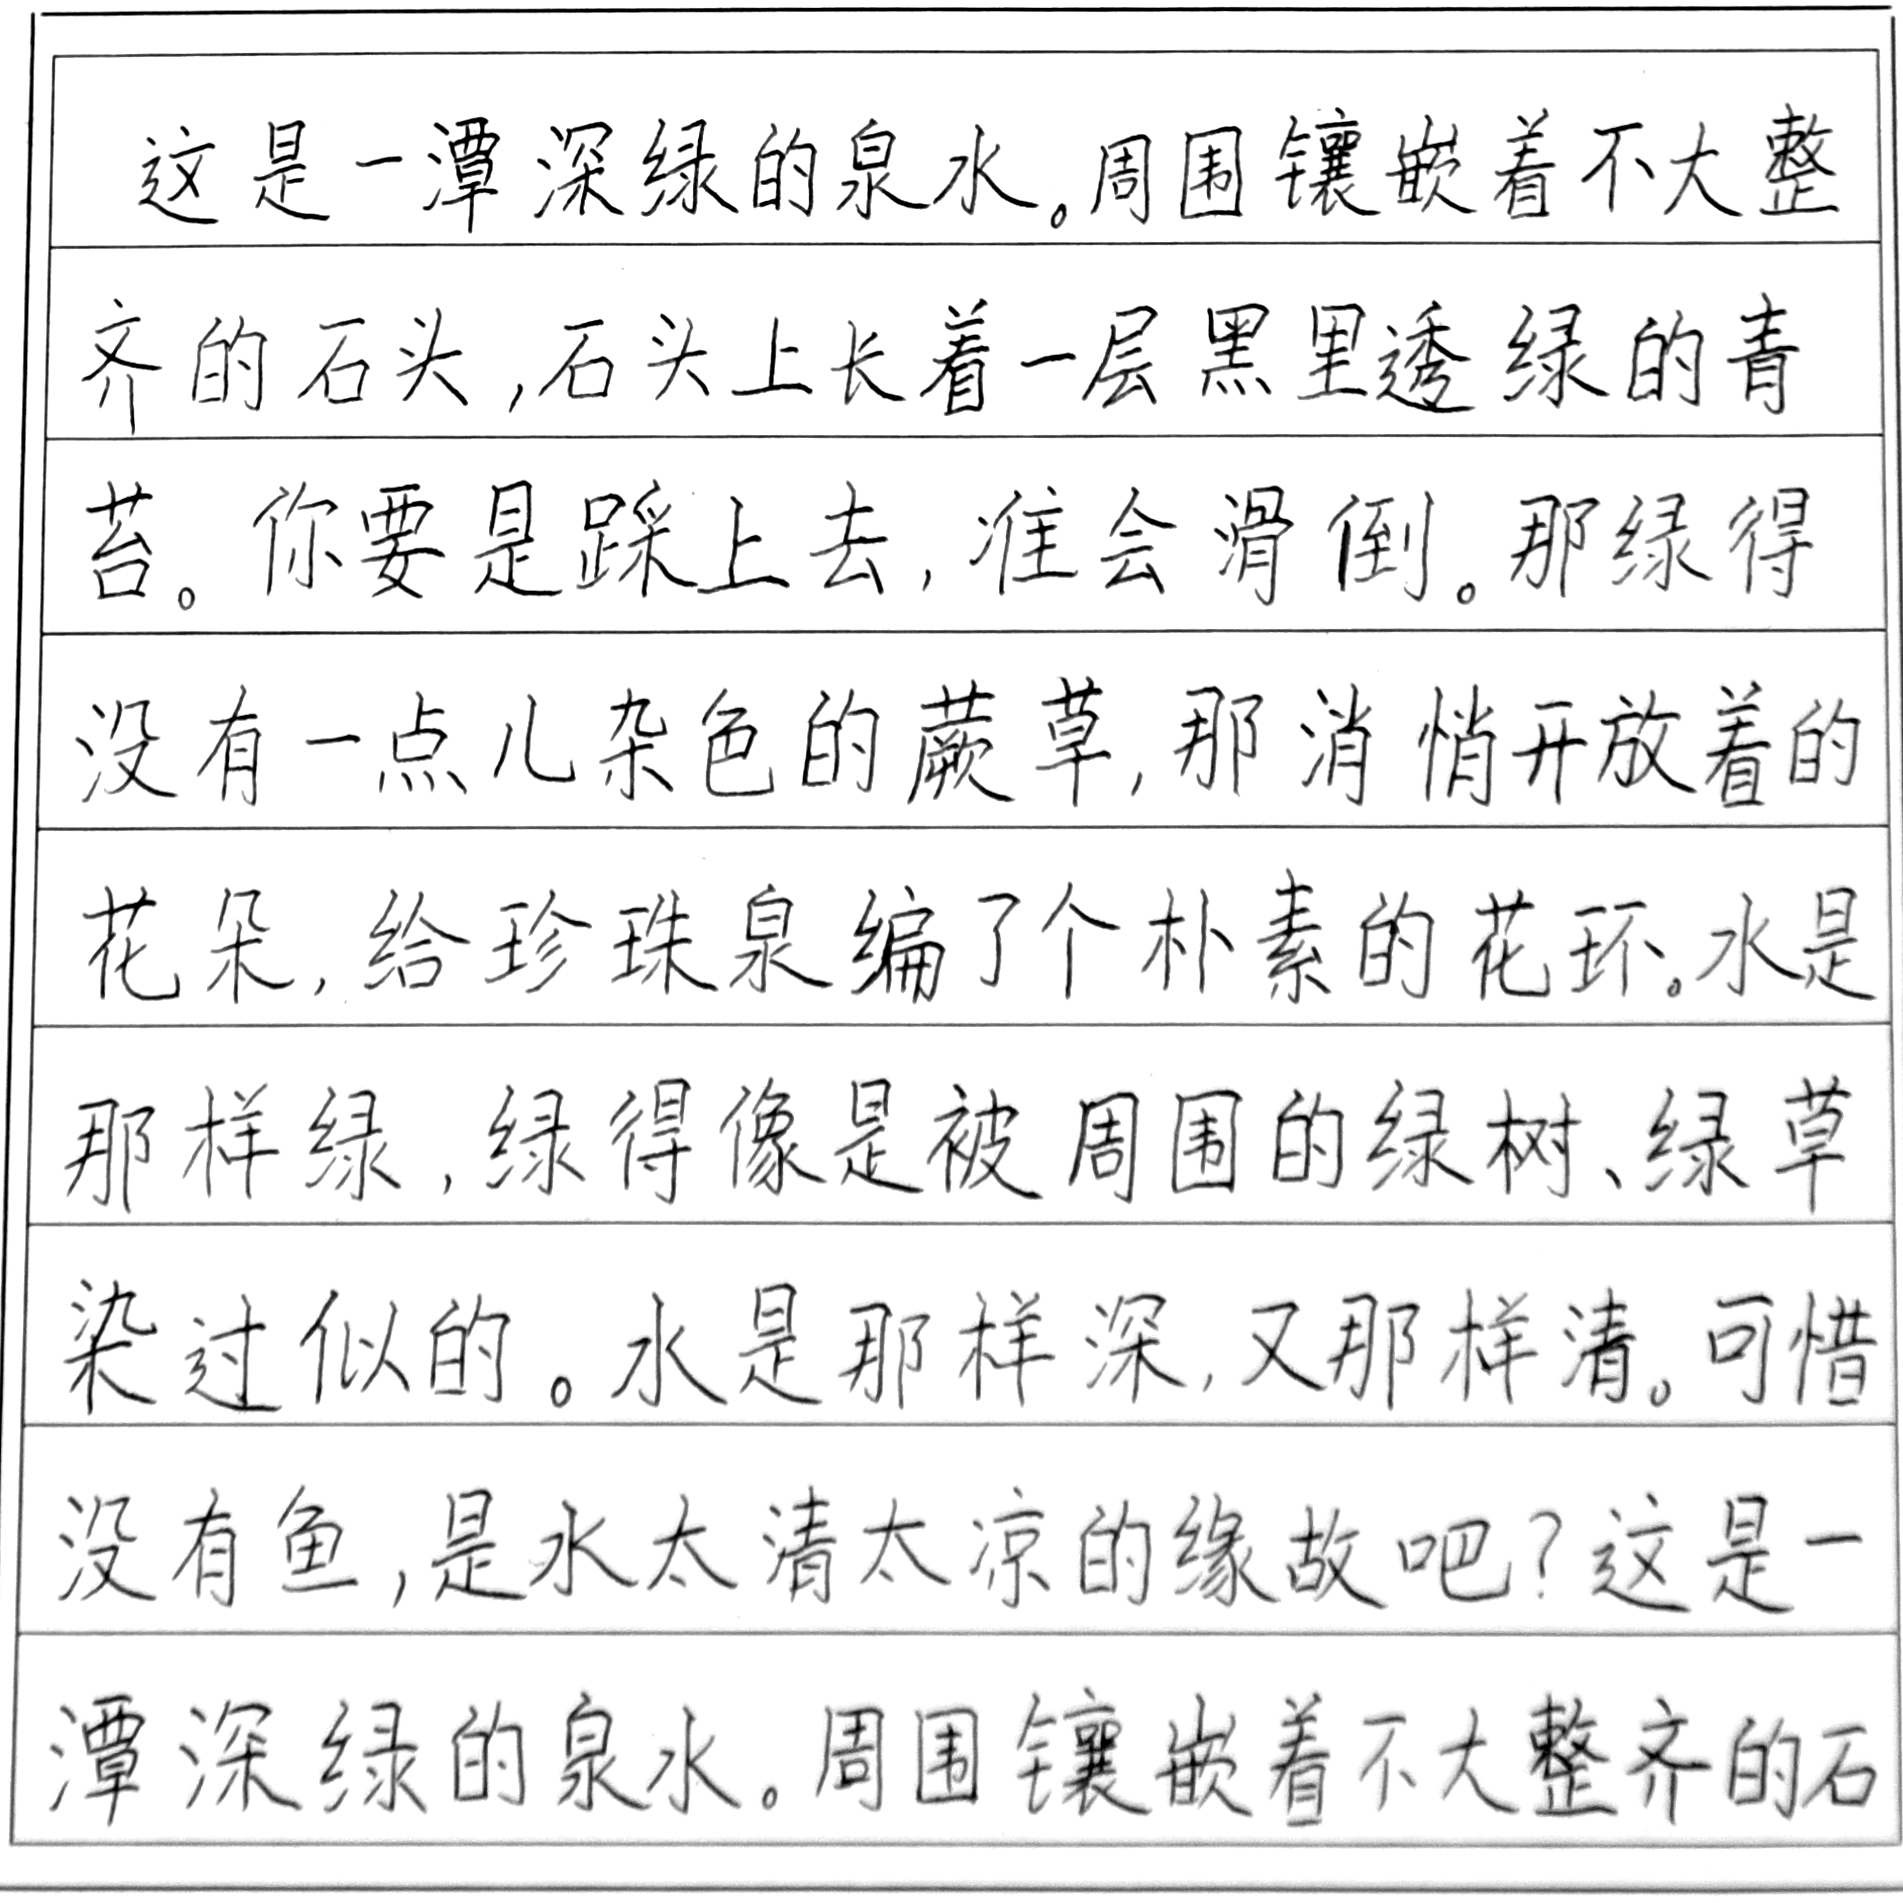 这是一潭深绿的泉水。周围镶嵌着不大整
齐的石头,石头上长着一层黑里透绿的青
苔。你要是踩上去,准会滑倒。那绿得
没有一点儿杂色的蕨草,那消悄开放着的
花朵,给珍珠泉编了个朴素的花环。水是
那样绿,绿得像是被周围的绿树、绿草
染过似的。水是那样深,又那样清。可惜
没有鱼,是水太清太凉的缘故吧?这是一
潭深绿的泉水。周围镶嵌着不大整齐的石